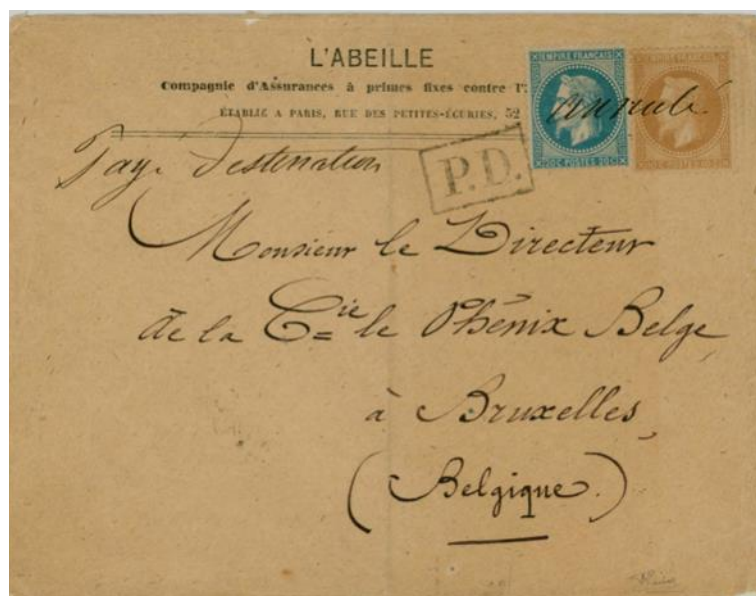 L'ABEILLE
Compagnie d'Assurances à primes fixes contre l'
ÉTABLIE A PARIS, RUE DES PETITES-ÉCURIES, 52
EMPIRE FRANÇAIS
20 C POSTES 20 C
EMPIRE FRANÇAIS
10 C POSTES 10 C
annulé
Paye Destination
P.D.
Monsieur le Directeur
de la Cie le Phénix Belge
à Bruxelles
(Belgique.)